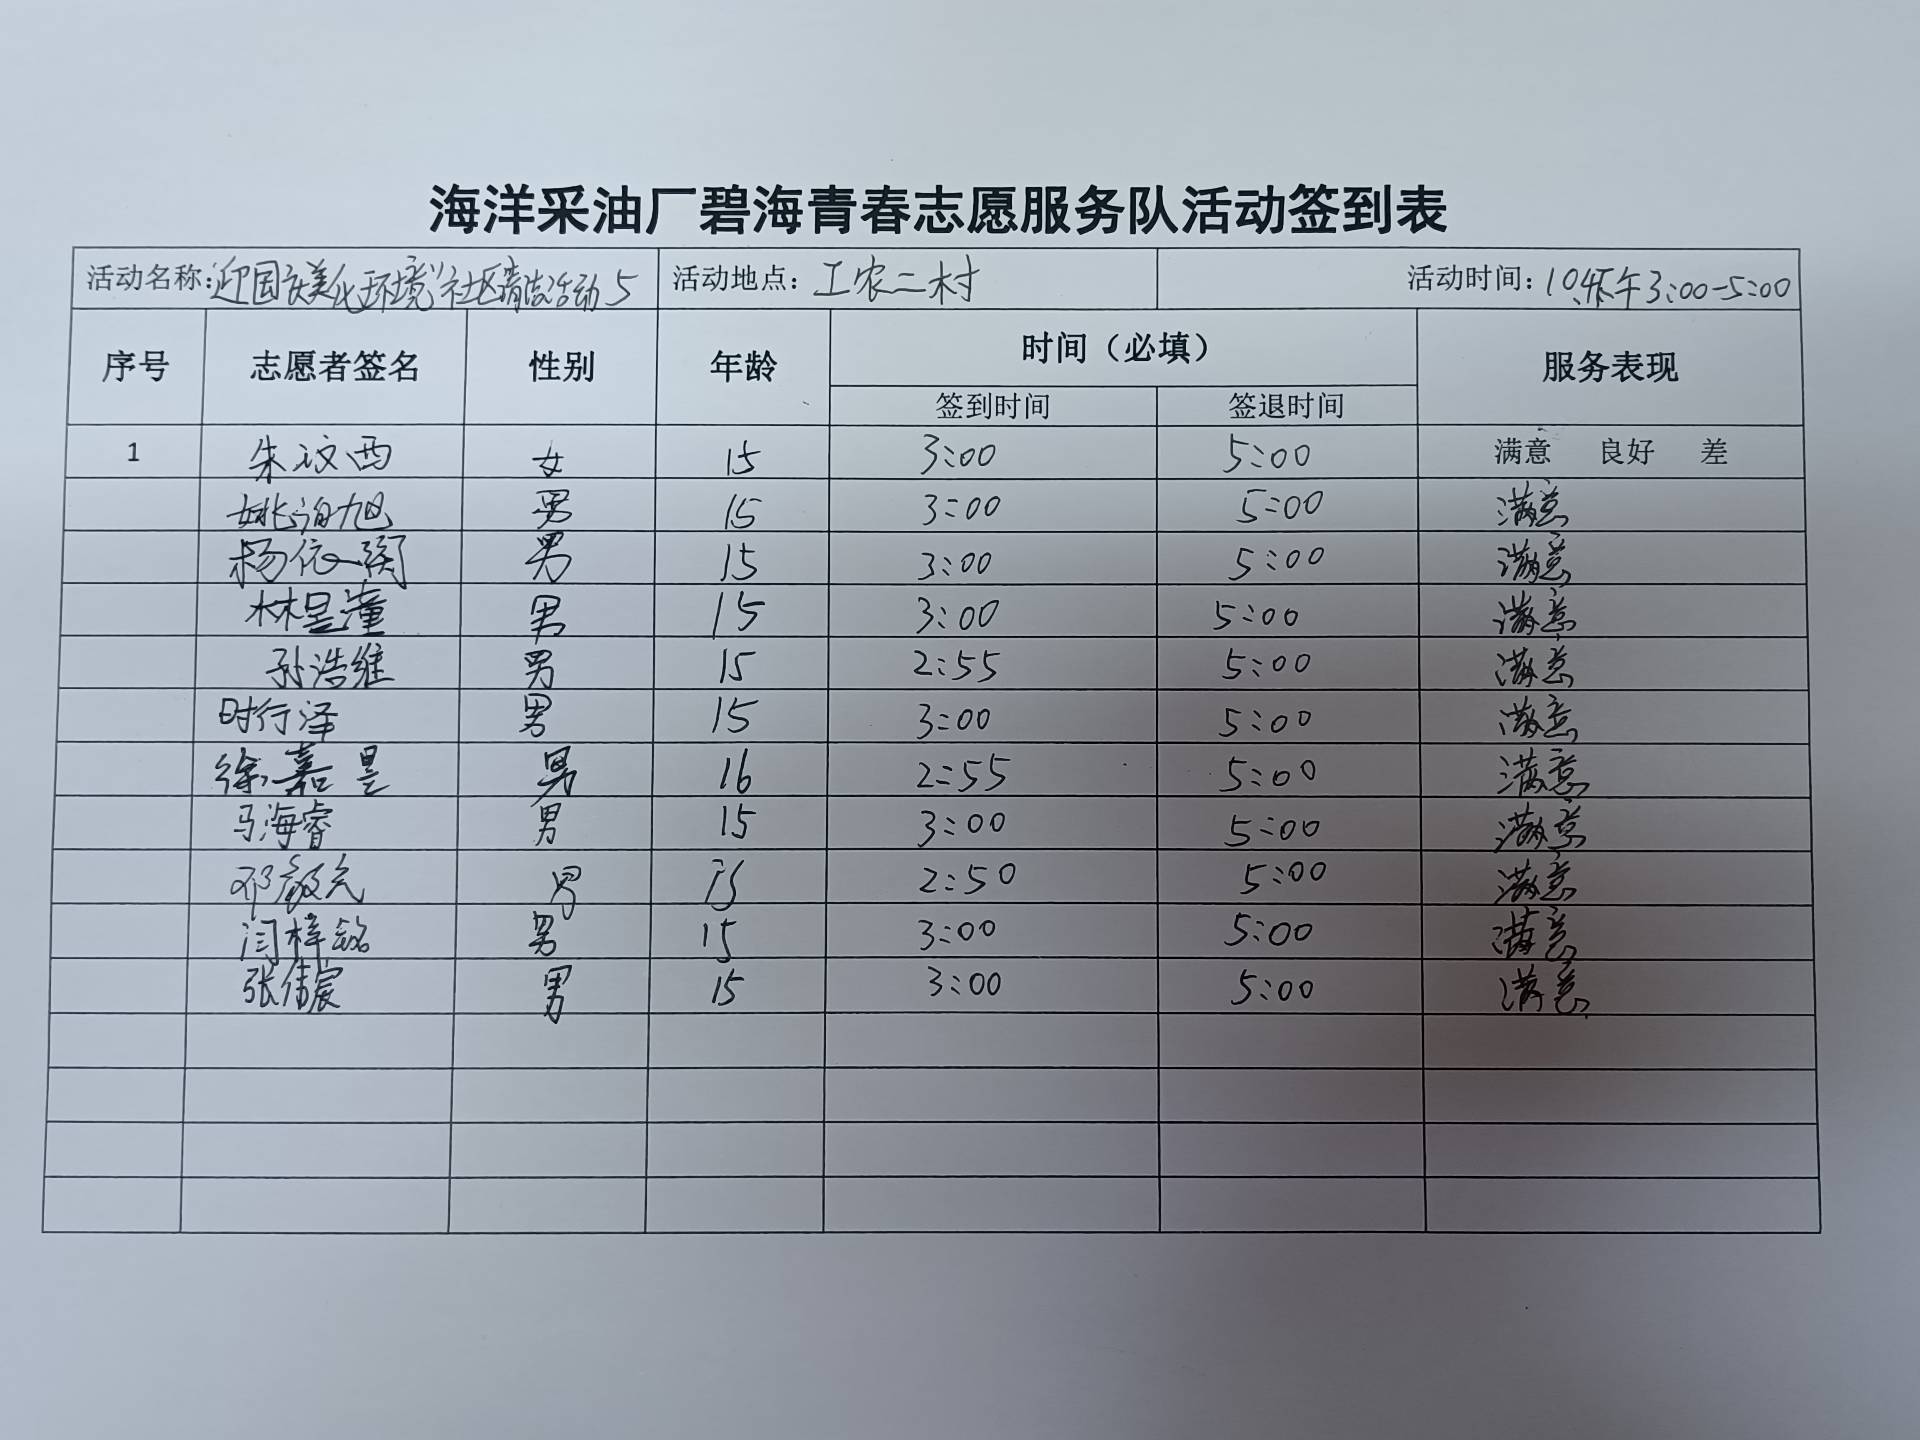 海洋采油厂碧海青春志愿服务队活动签到表
活动名称：“迎国庆美化环境”社区清洁活动5 活动地点：工农二村 活动时间：下午3:00-5:00
序号 志愿者签名 性别 年龄 时间（必填） 服务表现
签到时间 签退时间
1 朱汶西 女 15 3:00 5:00 满意 良好 差
姚 旭 男 15 3:00 5:00 满意
杨依 男 15 3:00 5:00 满意
林昱潼 男 15 3:00 5:00 满意
孙浩维 男 15 2:55 5:00 满意
时行泽 男 15 3:00 5:00 满意
徐嘉昱 男 16 2:55 5:00 满意
马海睿 男 15 3:00 5:00 满意
邓 元 男 15 2:50 5:00 满意
闫梓铭 男 15 3:00 5:00 满意
张倩宸 男 15 3:00 5:00 满意